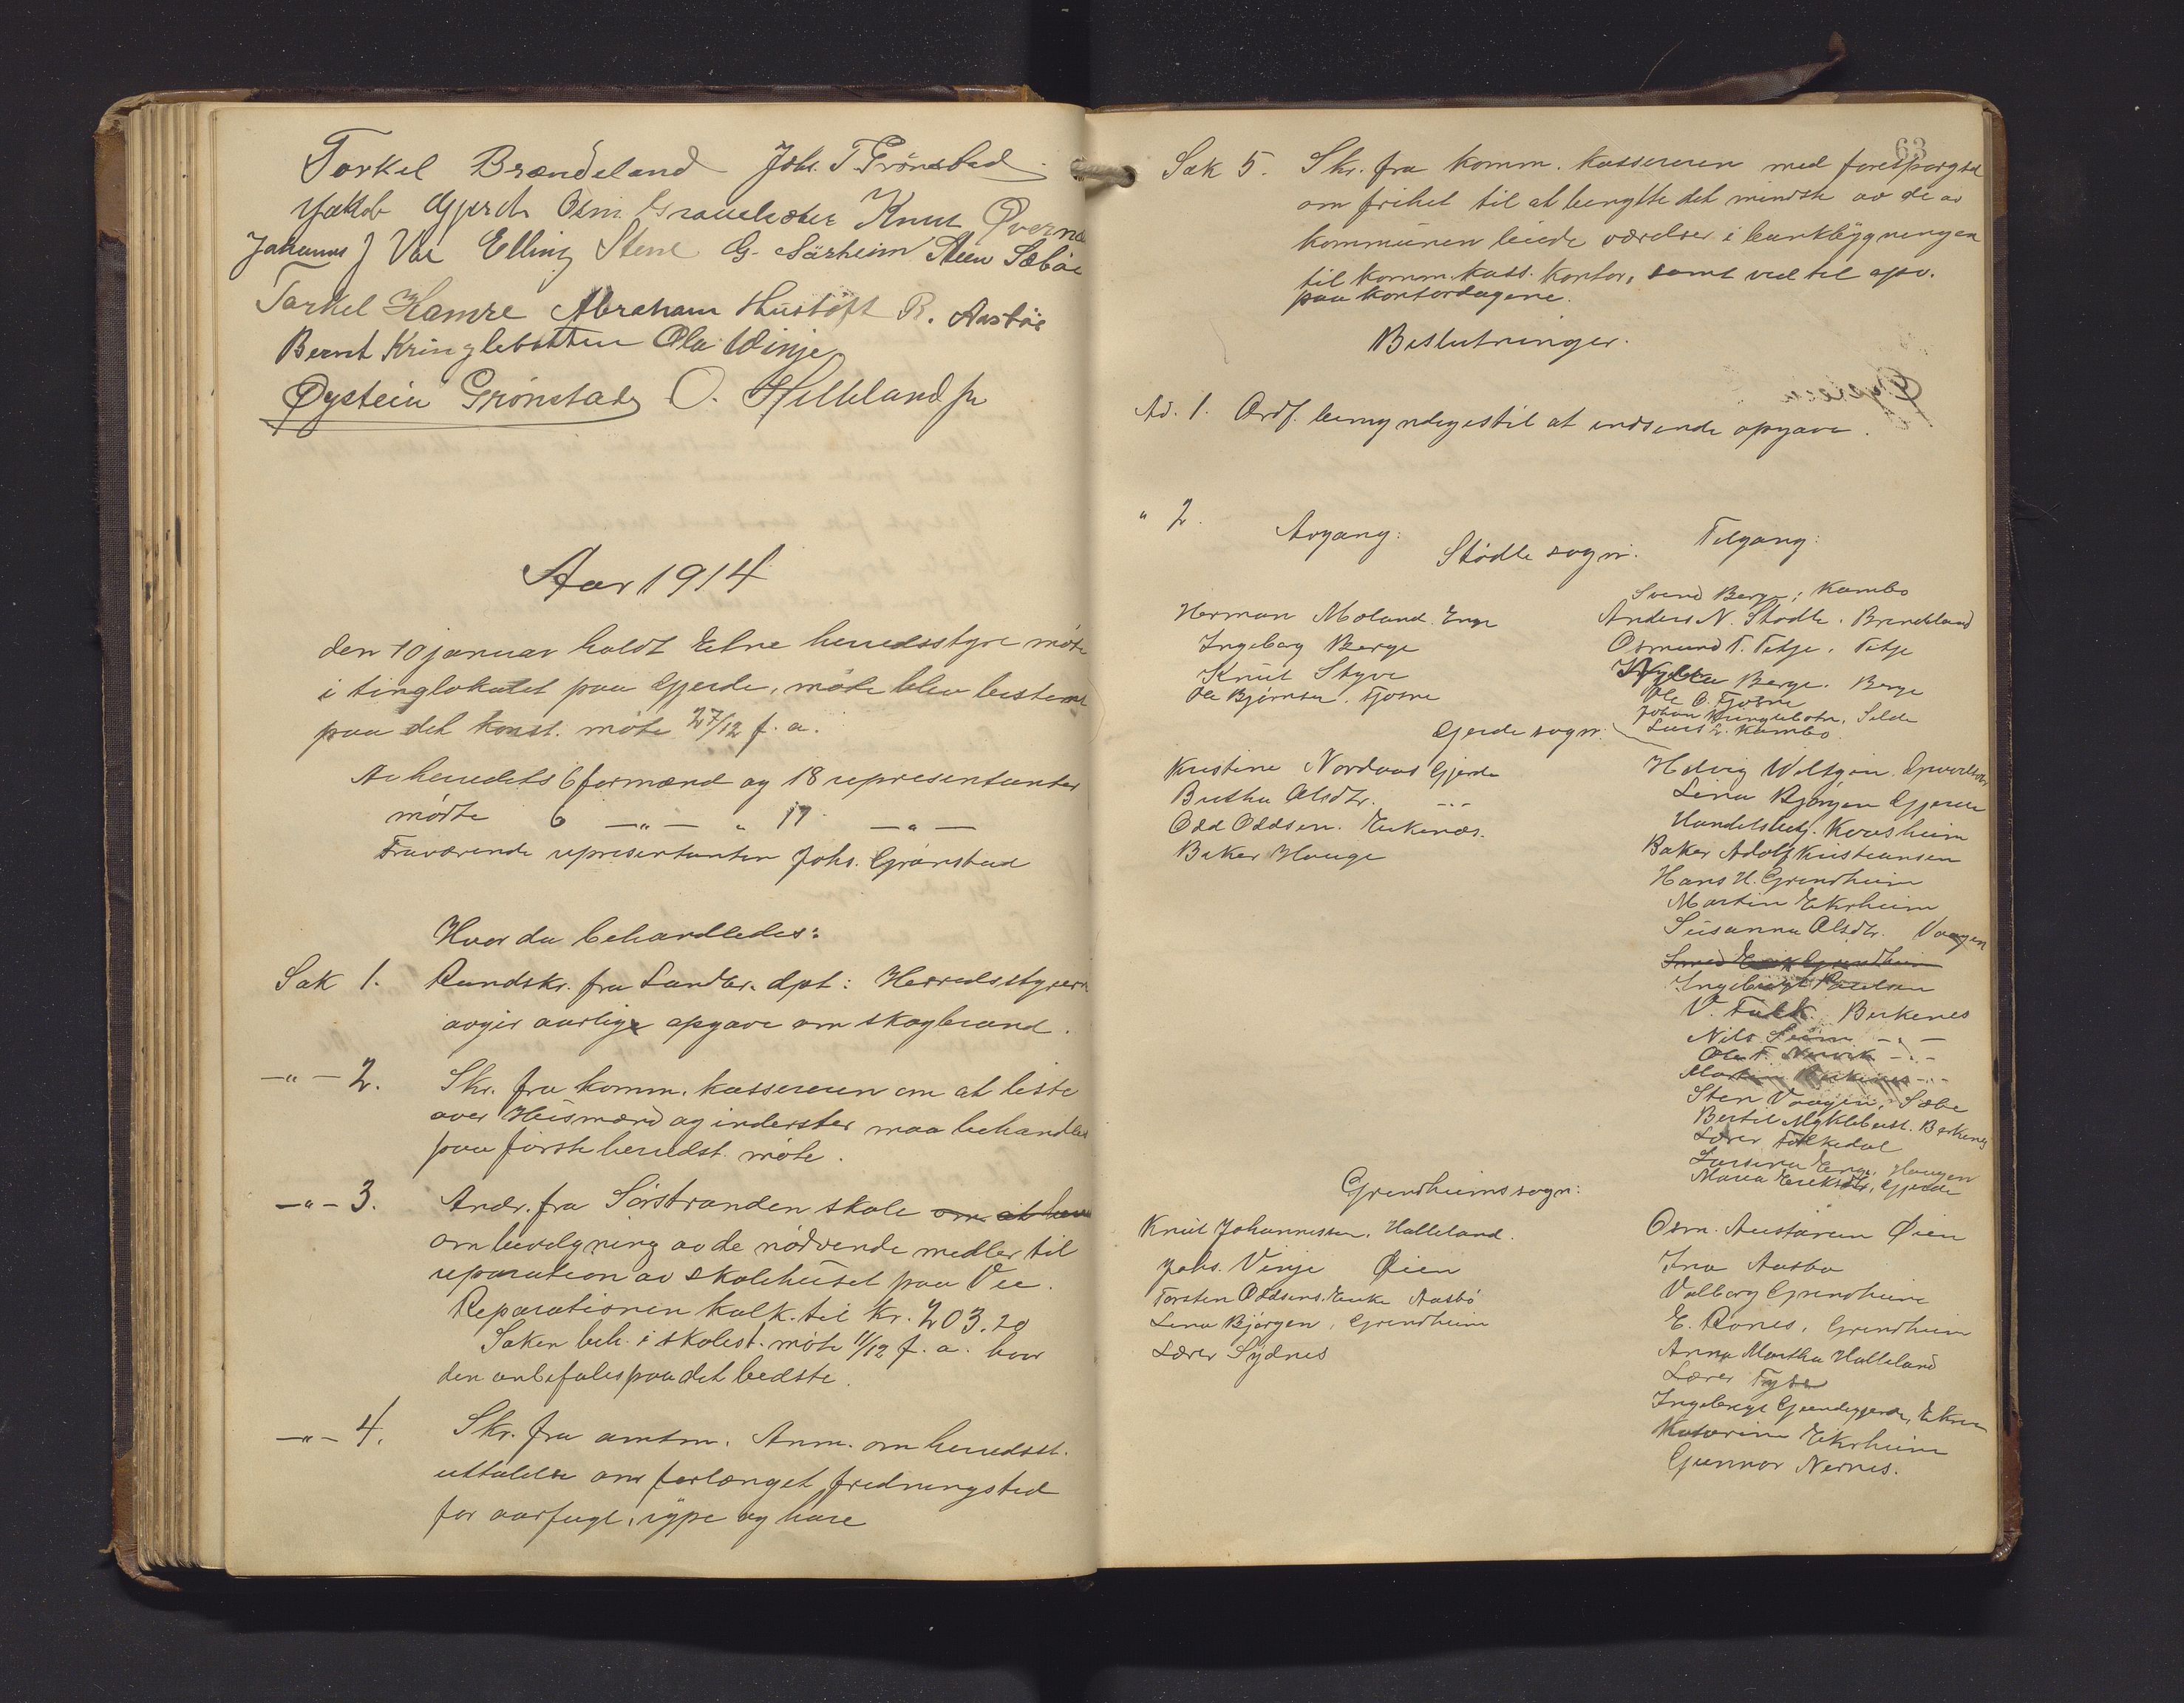 Torkel Brændeland Johs. T Grönstad
Jakob Gjerde Osm. Knut Qverne
Johannes J Vee Elling Stene G. Särheim Steen Sæbøe
Torkel Hamre Abraham Hustoft R. Aasbøe
Bernt Kringlebotten Ola Vinje
Øystein Grönstad O. Helleland jr
Aar 1914
den 10 januar holdt Etne herredsstyre möte
i tinglokalet paa Gjerde, möte blev bestemt
paa det konst. möte 27/12 f. a.
Av herredets 6 formænd og 18 representanter
mödte 6 —"— " 17 —"—
Fraværende representanten Johs. Grönstad
Hvor da behandledes:
Sak 1. Rundskr. fra Landbr. dpt: Herredsstyrern
avgir aarlige opgave om skogbrand.
—"— 2. Skr. fra komm. kassereren om at liste
over Husmænd og inderster maa behandles
paa förste herredst. möte.
—"— 3. Andr. fra Sörstranden skole om at
om bevilgning av de nödvende midler til
reparation av skolehuset paa Vee.
Reparationen kalk. til kr. 203.20
Saken beh. i skolest. möte 11/12 f. a. hvor
den anbefales paa det bedste.
—"— 4. Skr. fra amtm. Anm. om herredsst.
uttalelse om forlænget fredningstid
for aarfugl, rype og hare
63
Sak 5. Skr. fra komm. kassereren med forespørgsel
om frihet til at benytte det mindste av de av
kommunen leiede værelser i bankbygningen
til komm. kass. kontor, samt ved til opv.
paa kontordagene.
Beslutninger.
Ad. 1. Ordf. bemyndiges til at indsende opgave.
" 2. Avgang: Tilgang:
Stödle sogn.
Svend Berge, Kambo
Herman Moland. Enge Anders N. Stødle. Brendeland
Ingeborg Berge Osmund T. Tetje. Tetje
Knut Styve Berge. Berge
Ole Björnsen. Fjosne Ole O. Fjosne
Johan Kringlebotn, Selde
Gjerde sogn. Lars L. Kambo.
Kristine Nordaas Gjerde Helvig Weltzin.
Bertha Olsdtr. -"- Lena Bjørgen Gjerde
Odd Oddsen. Eikenæs. Handelsbetj. Kvasheim
Baker Hauge Baker Adolf Kristiansen
Hans H. Grindheim
Martin Ekrheim
Susanna Olsdtr. Vaagen
Grindheim
Ingeborg Paulsen
V. Falk. Berkenes
Nils Seim -"-
Ole T. -"-
Martin Berkenes -"-
Sten Vaagen, Sæbe
Bertil Myklebust. Berkenes
Lærer Folkedal
Larsina Enge. Haugen
Maria Eriksdtr, Gjerde
Grindheims sogn:
Knut Johannessen. Halleland. Osm. Austarum Øien
Johs. Vinje Øien Ina Aasbø
Torsten Oddsens. Enke Aasbö Valborg Grindheim
Lena Bjørgen, Grindheim E. Rones, Grindheim
Lærer Sydnes Anna Martha Halleland
Lærer
Ingeborg
Katarina Ekrheim
Gunnar Nernes.